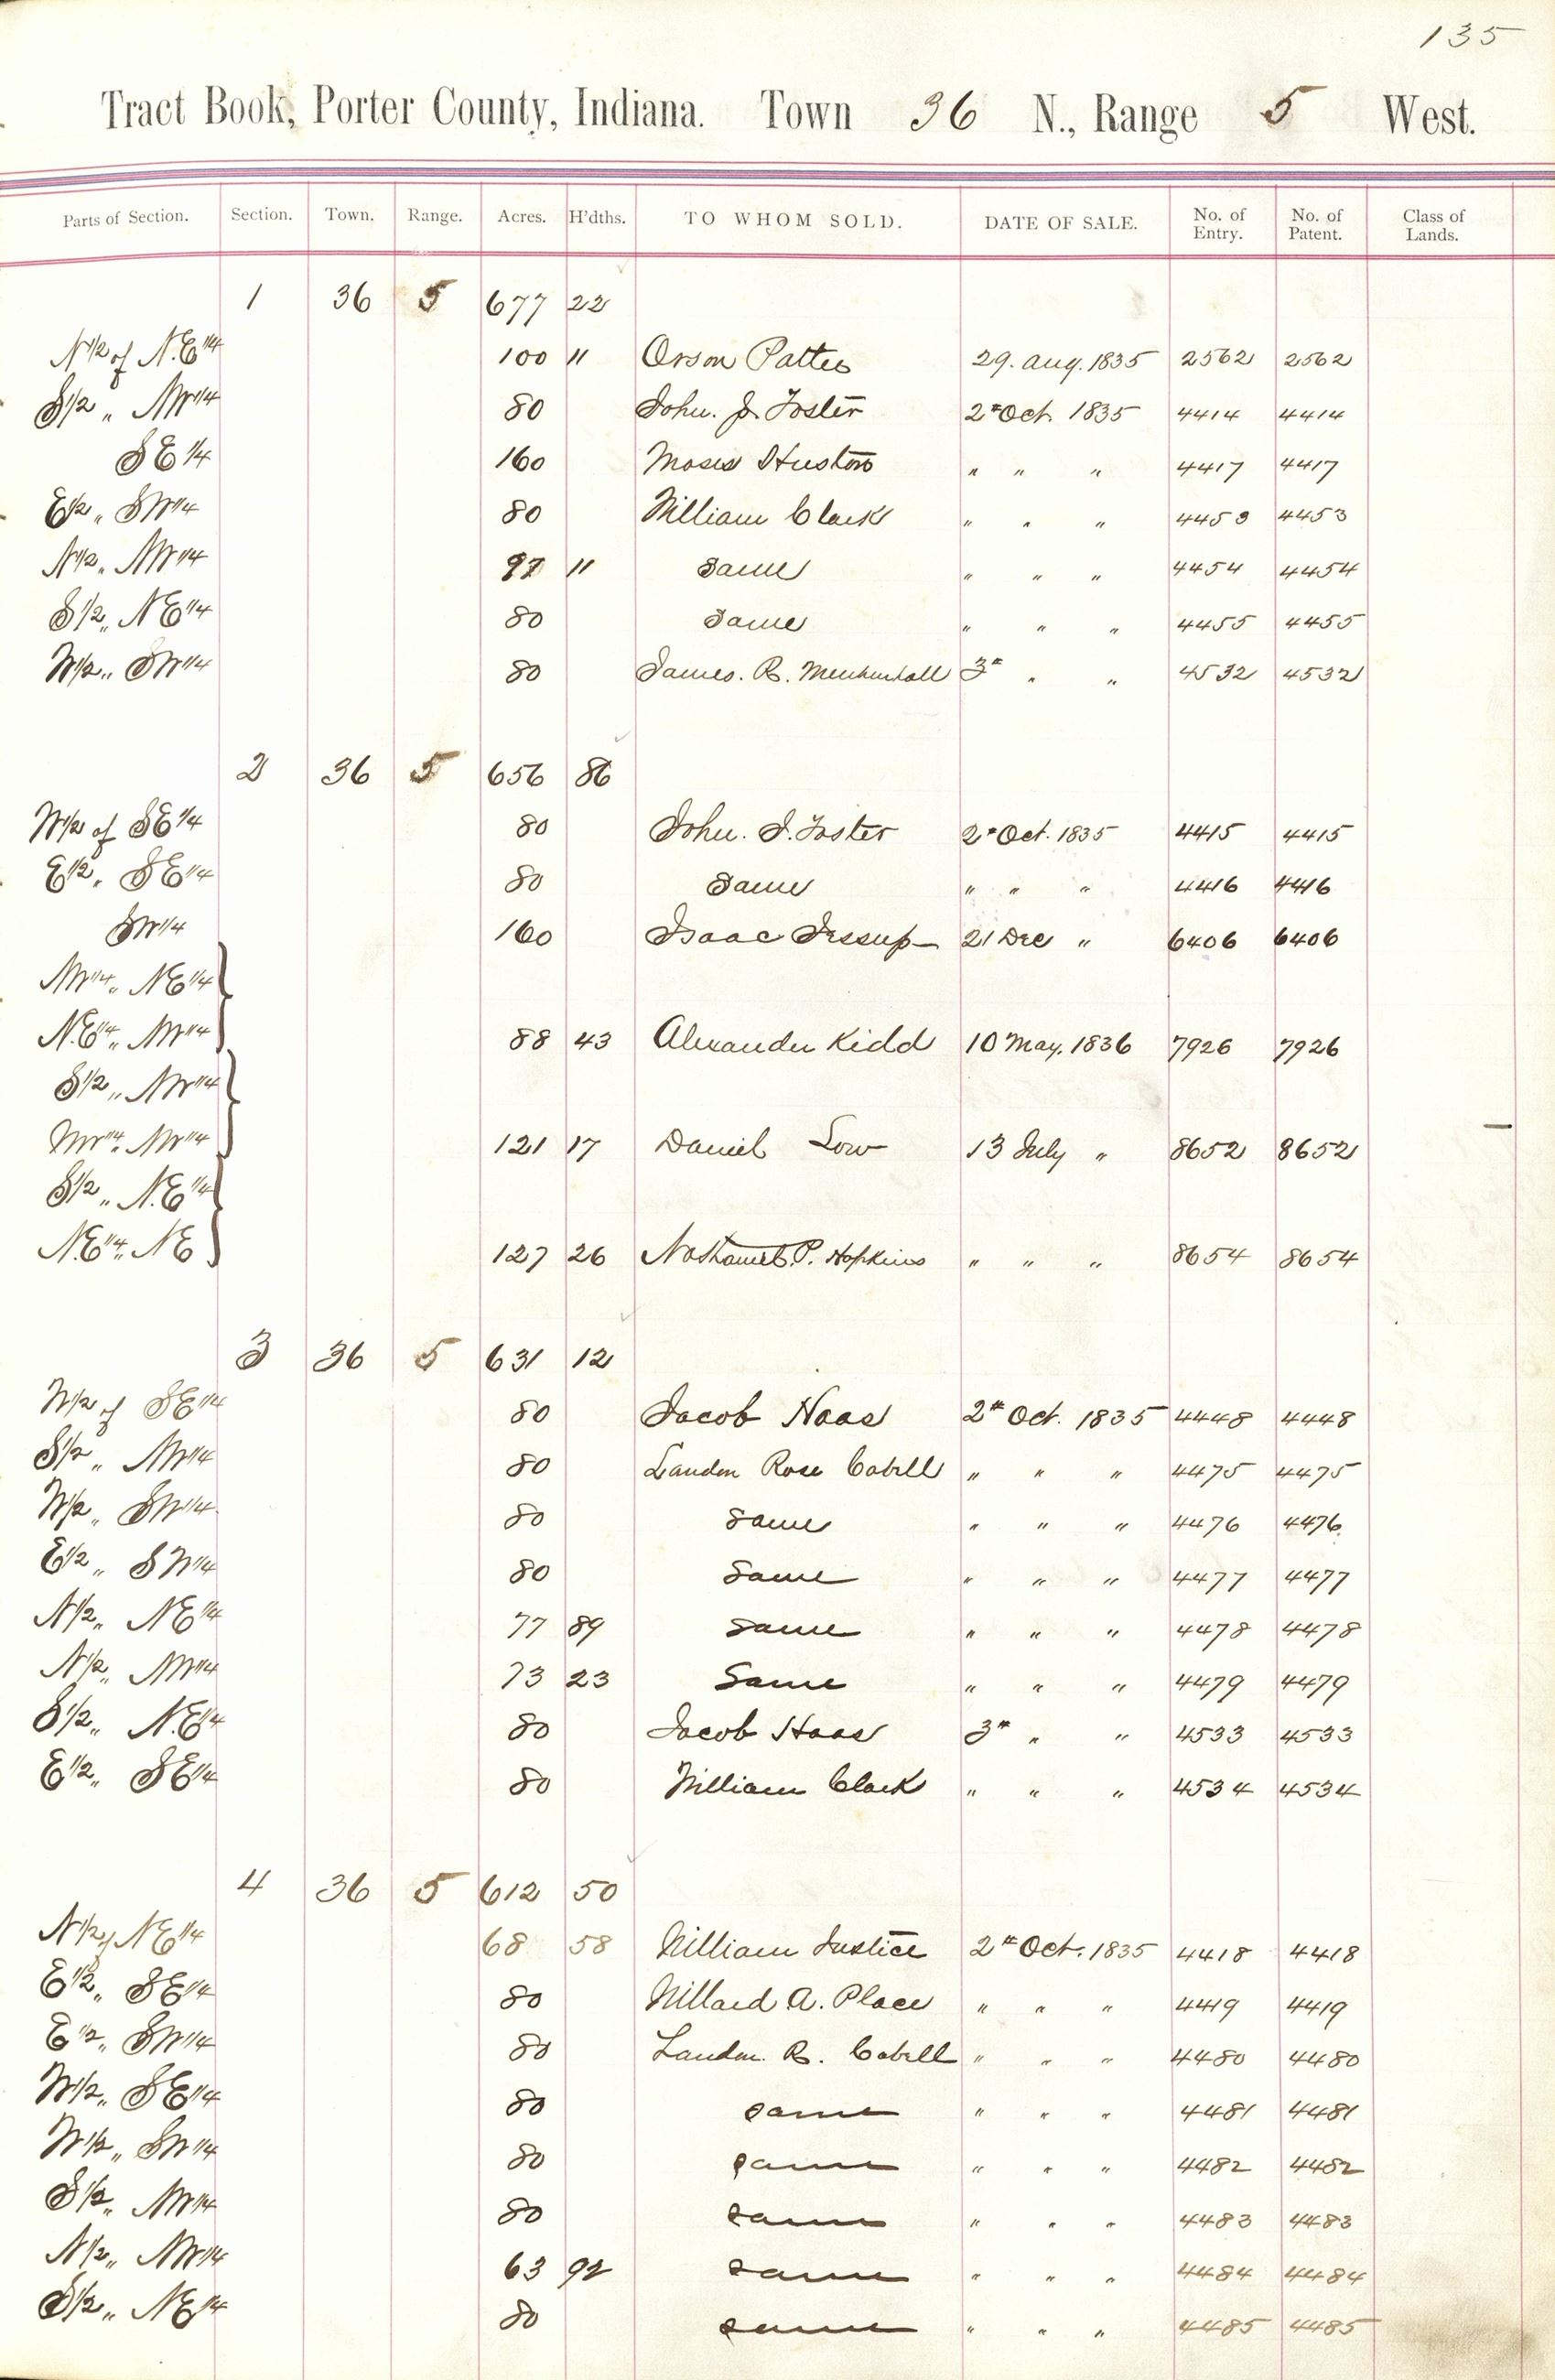 135
Tract Book, Porter County, Indiana. Town 36 N., Range 5 West.
Parts of Section. Section. Town. Range. Acres. H'dths. TO WHOM SOLD. DATE OF SALE. No. of Entry. No. of Patent. Class of Lands.
1 36 5 677 22
N 1/2 of N.E 1/4 100 11 Orson Pattee 29. Aug. 1835 2562 2562
S 1/2 " NW 1/4 80 John. J. Foster 2" Oct. 1835 4414 4414
SE 1/4 160 Moses Huston " " " 4417 4417
E 1/2 " SW 1/4 80 William Clark " " " 4453 4453
N 1/2 " NW 1/4 97 11 Same " " " 4454 4454
S 1/2 " NE 1/4 80 Same " " " 4455 4455
W 1/2 " SW 1/4 80 James. R. Menhenhall 3" " " 4532 4532
2 36 5 656 86
W 1/2 of SE 1/4 80 John. J. Foster 2" Oct. 1835 4415 4415
E 1/2 " SE 1/4 80 Same " " " 4416 4416
SW 1/4 160 Isaac Jessup 21 Dec " 6406 6406
NW 1/4 " NE 1/4
N.E 1/4 " NW 1/4 88 43 Alexander Kidd 10 May. 1836 7926 7926
S 1/2 " NW 1/4
NW 1/4 " NW 1/4 121 17 Daniel Low 13 July " 8652 8652
S 1/2 " N.E 1/4
N.E 1/4 " NE 127 26 Nathaniel. P. Hopkins " " " 8654 8654
3 36 5 631 12
W 1/2 of SE 1/4 80 Jacob Haas 2" Oct. 1835 4448 4448
S 1/2 " NW 1/4 80 Landon Rose Cabell " " " 4475 4475
W 1/2 " SW 1/4 80 Same " " " 4476 4476
E 1/2 " SW 1/4 80 Same " " " 4477 4477
N 1/2 " NE 1/4 77 89 Same " " " 4478 4478
N 1/2 " NW 1/4 73 23 Same " " " 4479 4479
S 1/2 " N.E 1/4 80 Jacob Haas 3" " " 4533 4533
E 1/2 " SE 1/4 80 William Clark " " " 4534 4534
4 36 5 612 50
N 1/2 of NE 1/4 68 58 William Justice 2" Oct. 1835 4418 4418
E 1/2 " SE 1/4 80 Willard A. Place " " " 4419 4419
E 1/2 " SW 1/4 80 Landon. R. Cabell " " " 4480 4480
W 1/2 " SE 1/4 80 same " " " 4481 4481
W 1/2 " SW 1/4 80 same " " " 4482 4482
S 1/2 " NW 1/4 80 same " " " 4483 4483
N 1/2 " NW 1/4 63 92 same " " " 4484 4484
S 1/2 " NE 1/4 80 same " " " 4485 4485